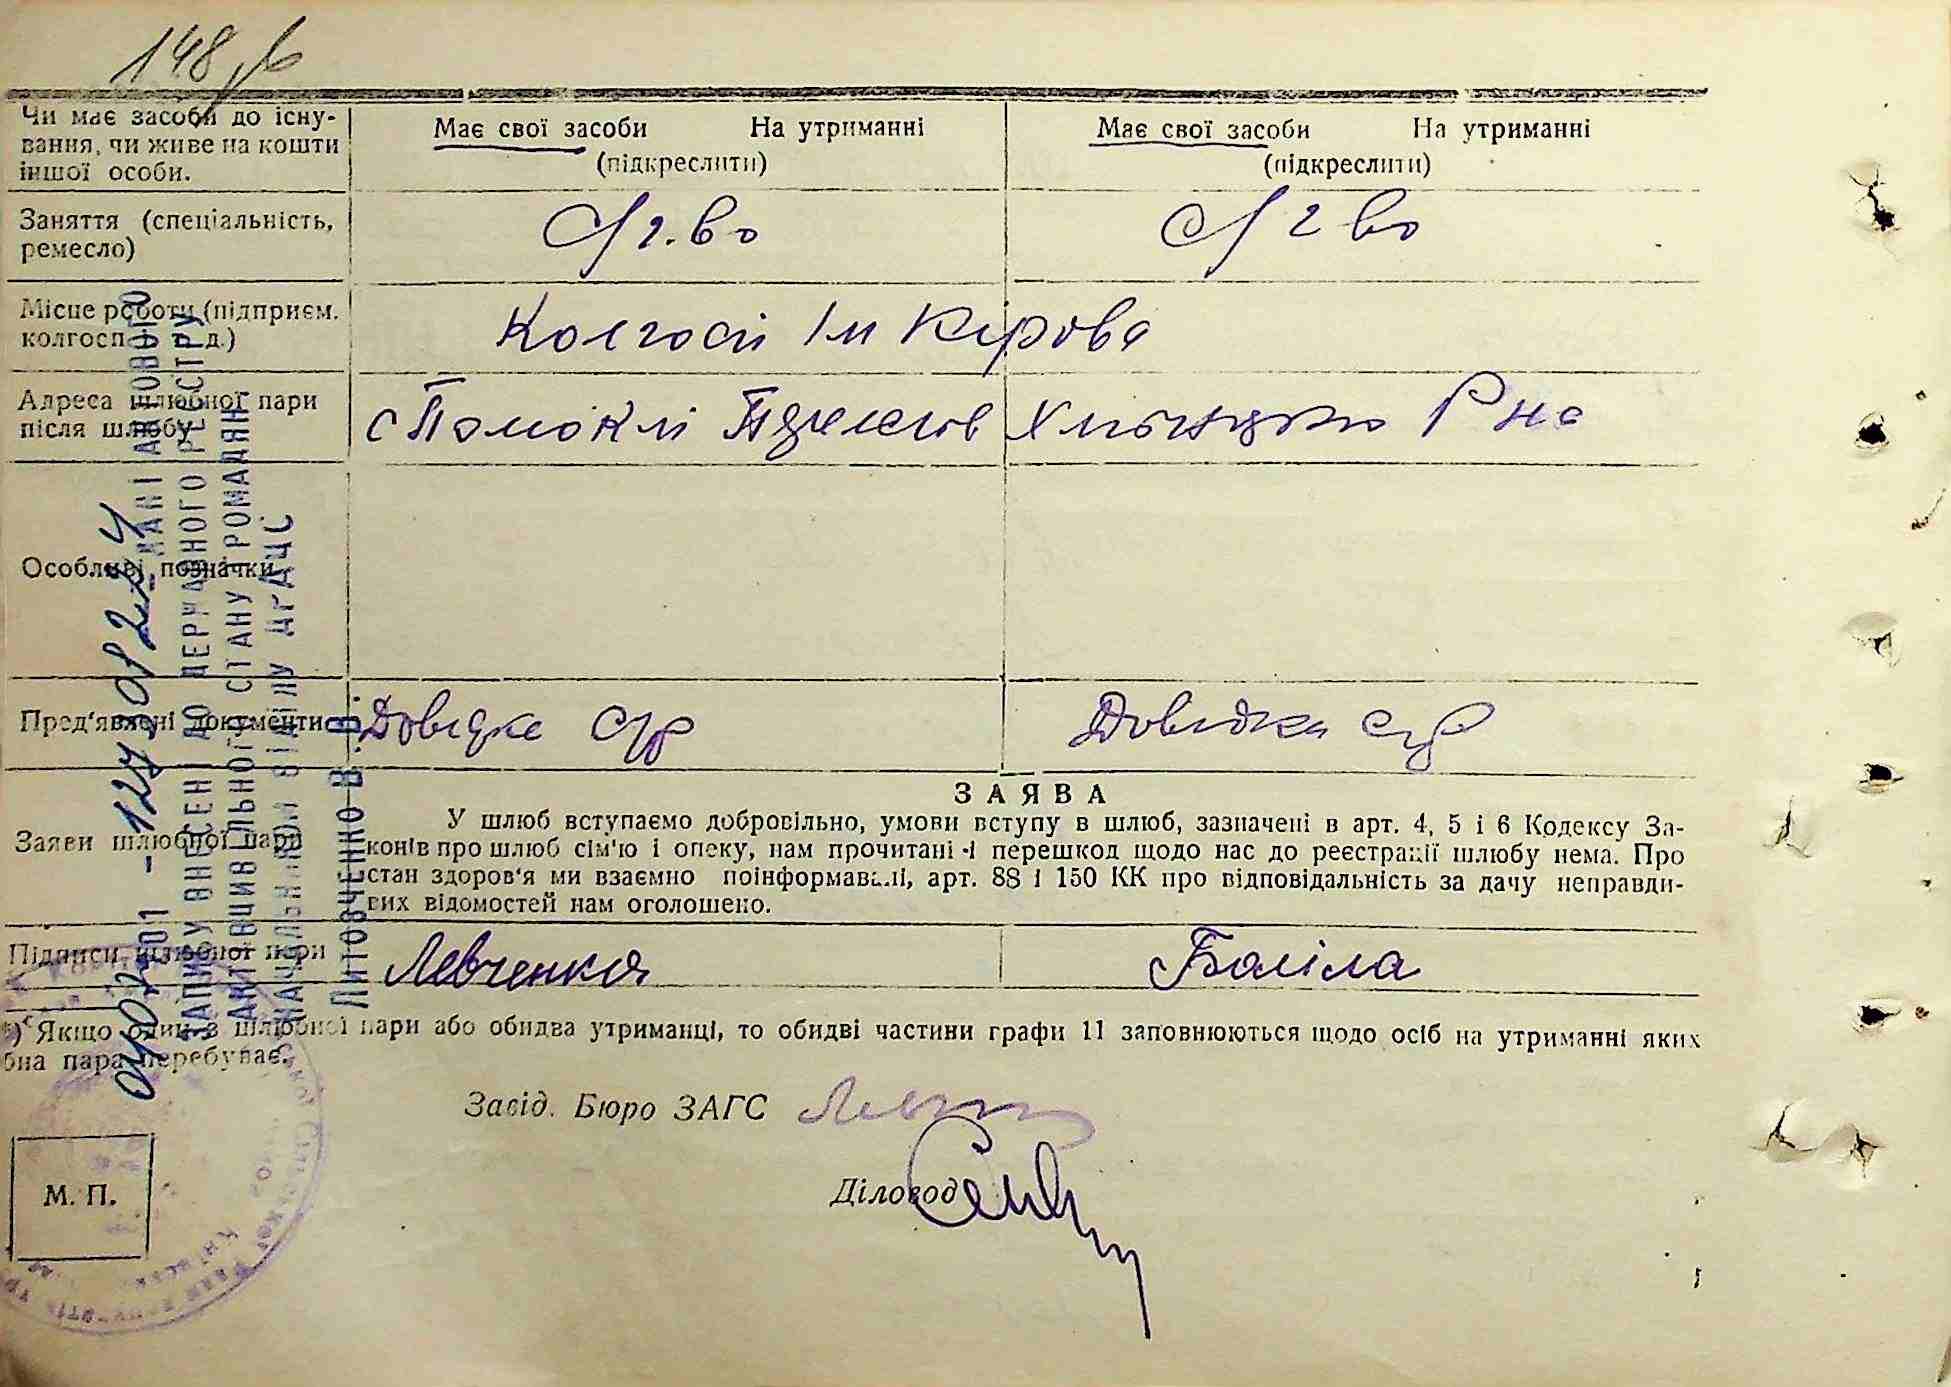 148
Чи має засоби до існу-
вання, чи живе на кошти
іншої особи.
Має свої засоби На утриманні
(підкреслити)
Має свої засоби На утриманні
(підкреслити)
Заняття (спеціальність,
ремесло)
С/г.во
С/г во
Місце роботи (підприєм.
колгосп і т. д.)
Колгосп Ім Кірова
Адреса шлюбної пари
після шлюбу
с Помоклі Хмельницького Р на
Особливі позначки
Пред'явлені документи
Довідка С/р
Довідка с/р
Заяви шлюбної пари
ЗАЯВА
У шлюб вступаємо добровільно, умови вступу в шлюб, зазначені в арт. 4, 5 і 6 Кодексу За-
конів про шлюб сім'ю і опеку, нам прочитані і перешкод щодо нас до реєстрації шлюбу нема. Про
стан здоров'я ми взаємно поінформавалі, арт. 88 і 150 КК про відповідальність за дачу неправди-
вих відомостей нам оголошено.
Підписи шлюбної пари
Левченко
Баліла
*) Якщо один з шлюбної пари або обидва утриманці, то обидві частини графи 11 заповнюються щодо осіб на утриманні яких
бна пара перебуває.
Завід. Бюро ЗАГС
Діловод
М. П.
ДАНІ АКТОВОГО
ЗАПИСУ ВНЕСЕНІ ДО ДЕРЖАВНОГО РЕЄСТРУ
АКТІВ ЦИВІЛЬНОГО СТАНУ ГРОМАДЯН
НАЧАЛЬНИКОМ ВІДДІЛУ ДРАЦС
ЛИТОВЧЕНКО В. В.